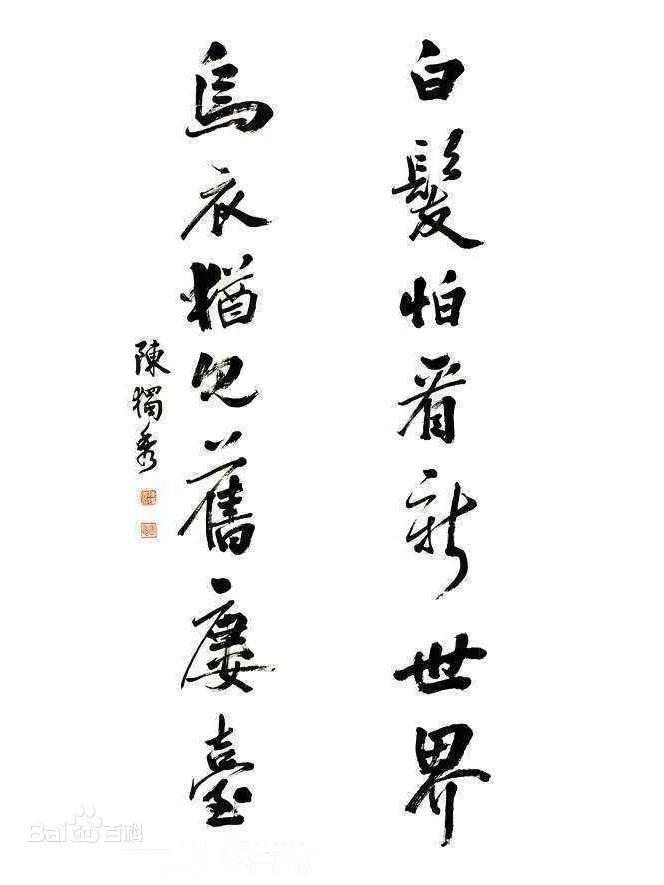 白髮怕看新世界
烏衣猶見舊廔臺
陳獨秀
Bai百科